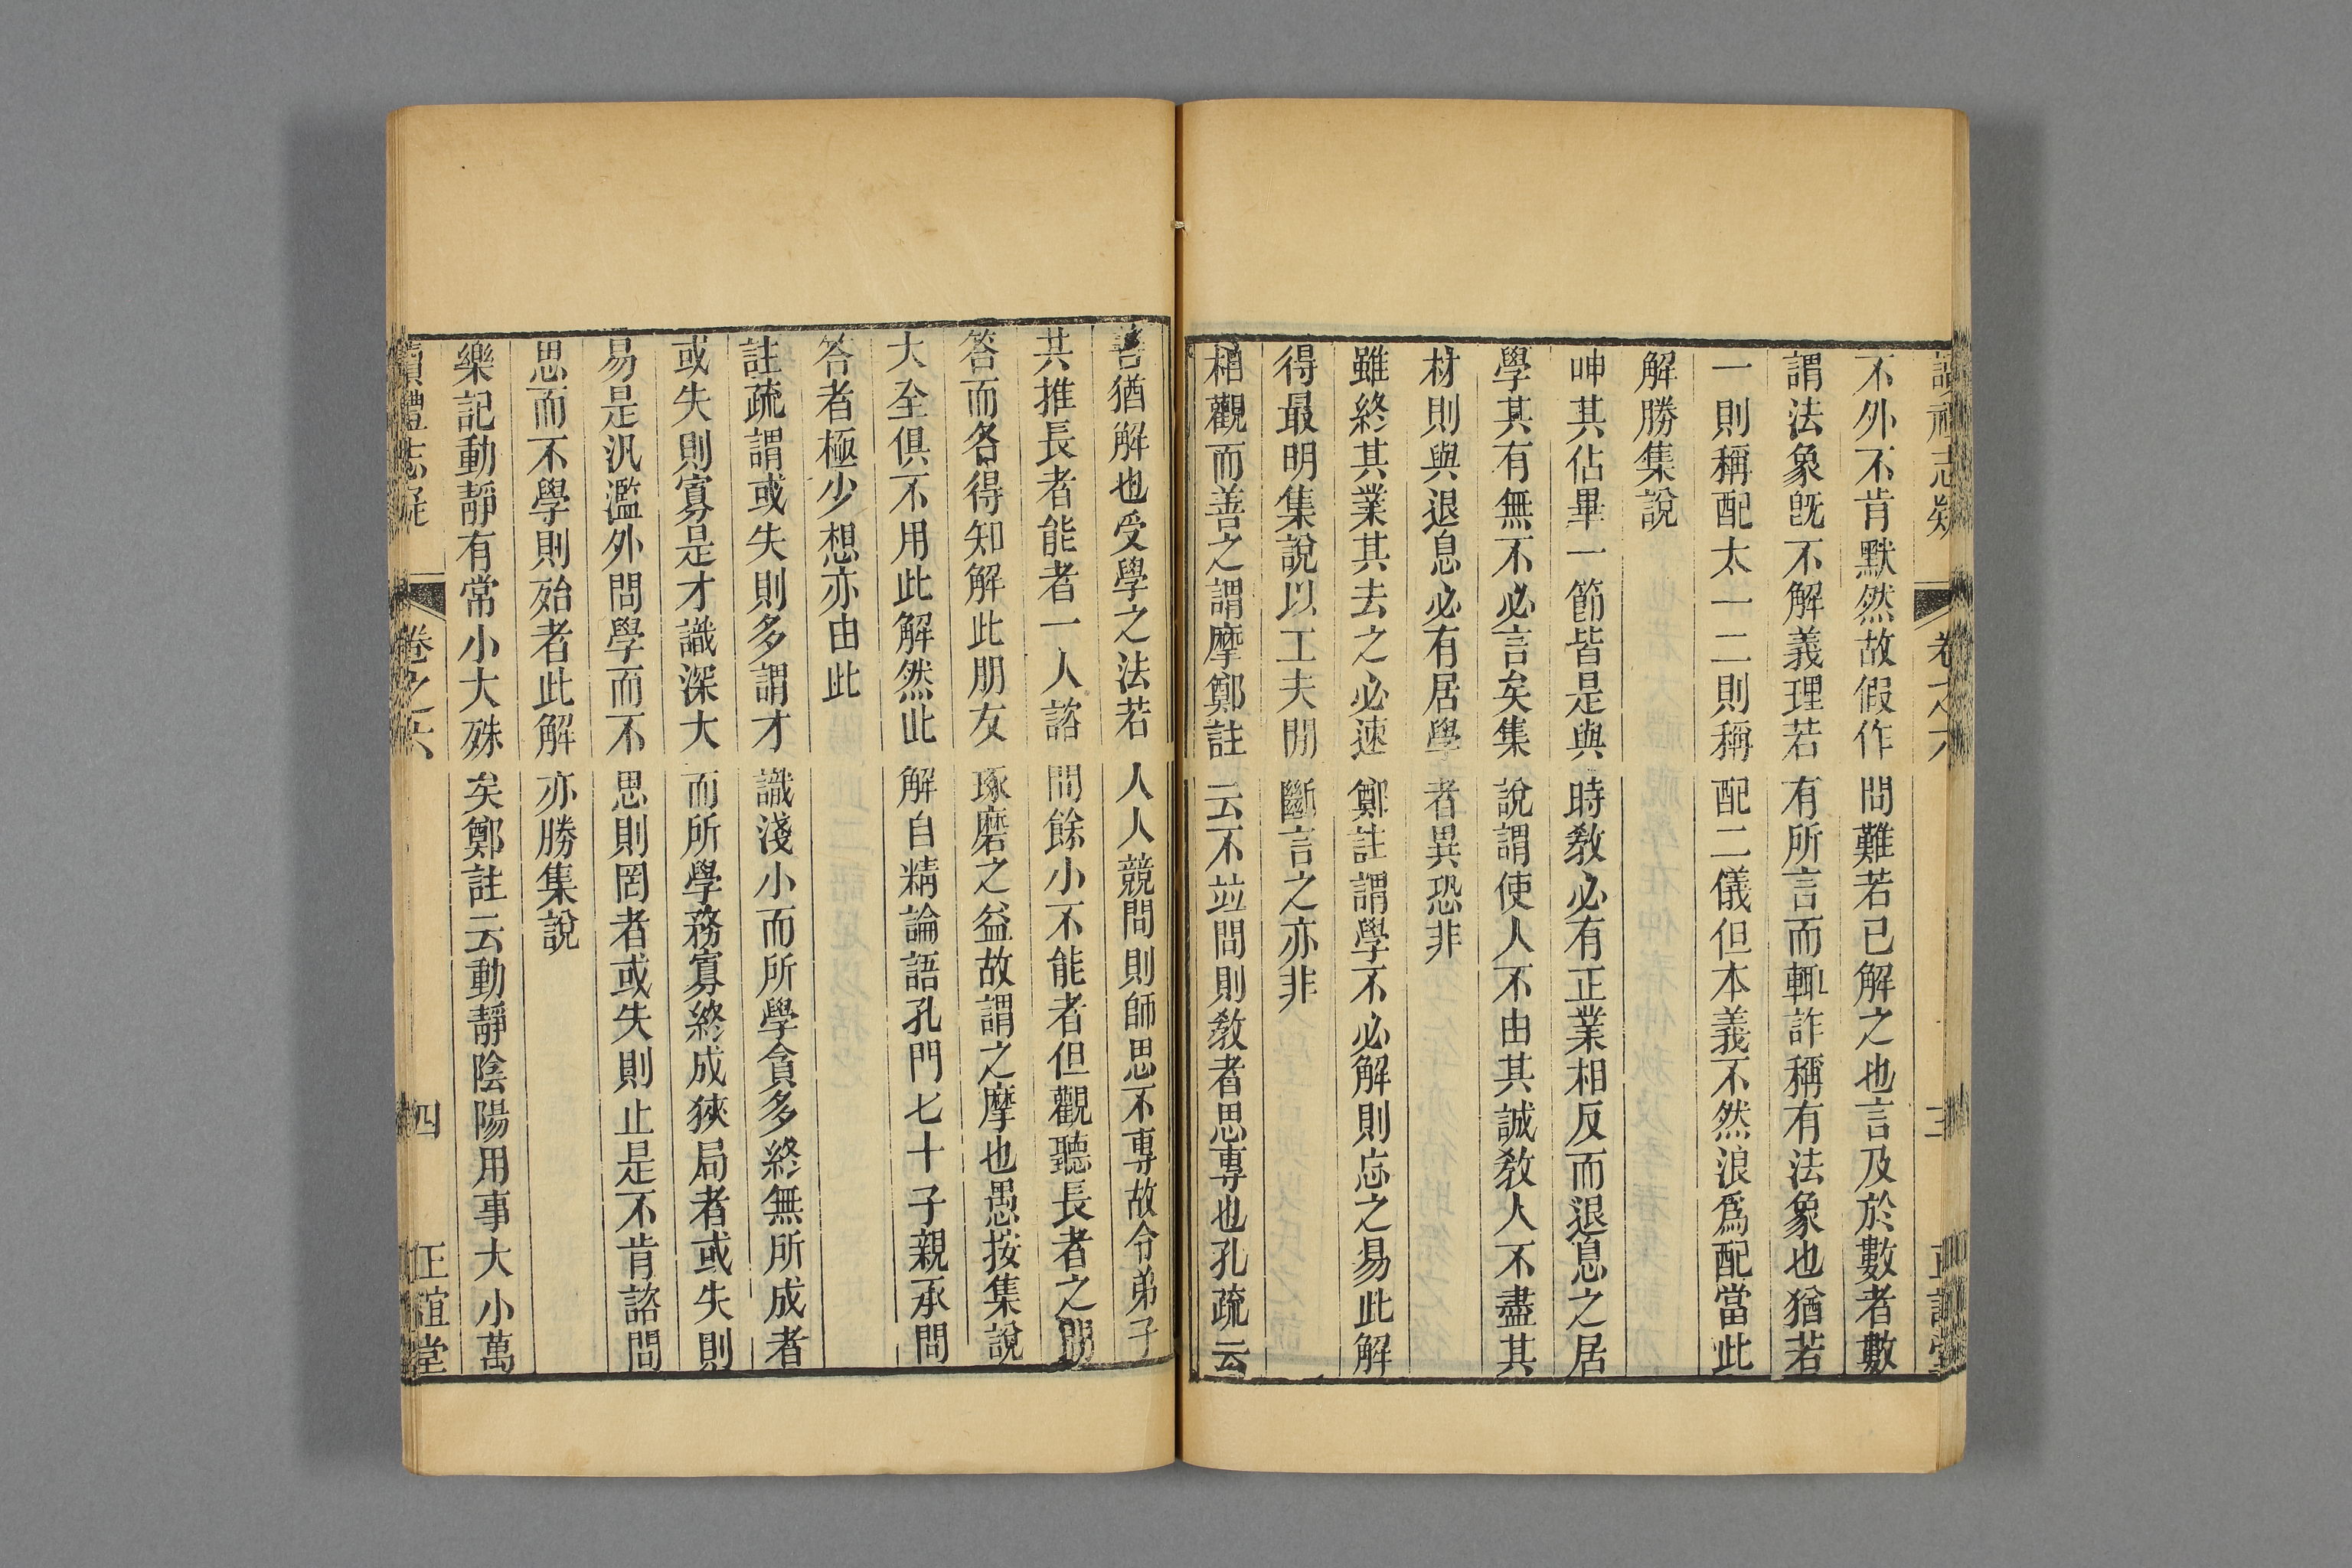 讀禮志疑 卷之六 三 正誼堂
不外不肯默然故假作問難若已解之也言及於數者數
謂法象旣不解義理若有所言而輒詐稱有法象也猶若
一則稱配太一二則稱配二儀但本義不然浪爲配當此
解勝集說
呻其佔畢一節皆是與時敎必有正業相反而退息之居
學其有無不必言矣集說謂使人不由其誠敎人不盡其
材則與退息必有居學者異恐非
雖終其業其去之必速鄭註謂學不必解則忘之易此解
得最明集說以工夫間斷言之亦非
相觀而善之謂摩鄭註云不並問則敎者思專也孔疏云
善猶解也受學之法若人人競問則師思不專故令弟子
共推長者能者一人諮問餘小不能者但觀聽長者之問
答而各得知解此朋友琢磨之益故謂之摩也愚按集說
大全俱不用此解然此解自精論語孔門七十子親承問
答者極少想亦由此
註疏謂或失則多謂才識淺小而所學貪多終無所成者
或失則寡是才識深大而所學務寡終成狹局者或失則
易是汎濫外問學而不思則罔者或失則止是不肯諮問
思而不學則殆者此解亦勝集說
樂記動靜有常小大殊矣鄭註云動靜陰陽用事大小萬
讀禮志疑 卷之六 四 正誼堂